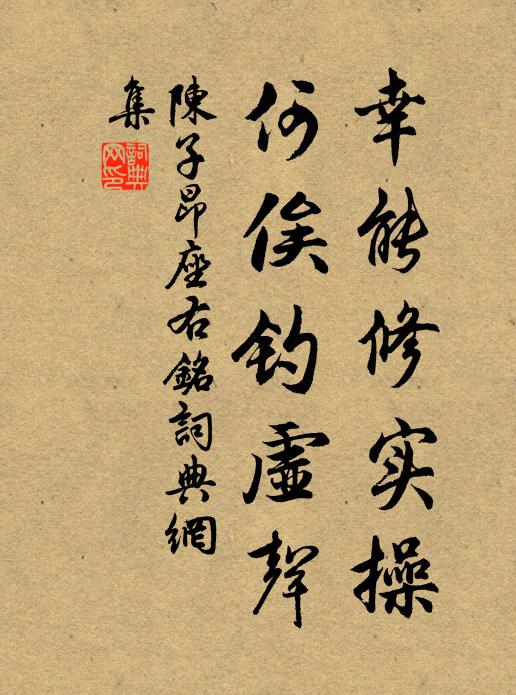 幸能修实操
何俟钓虛聲
陳子昂座右銘詞典網
集
詞典網印